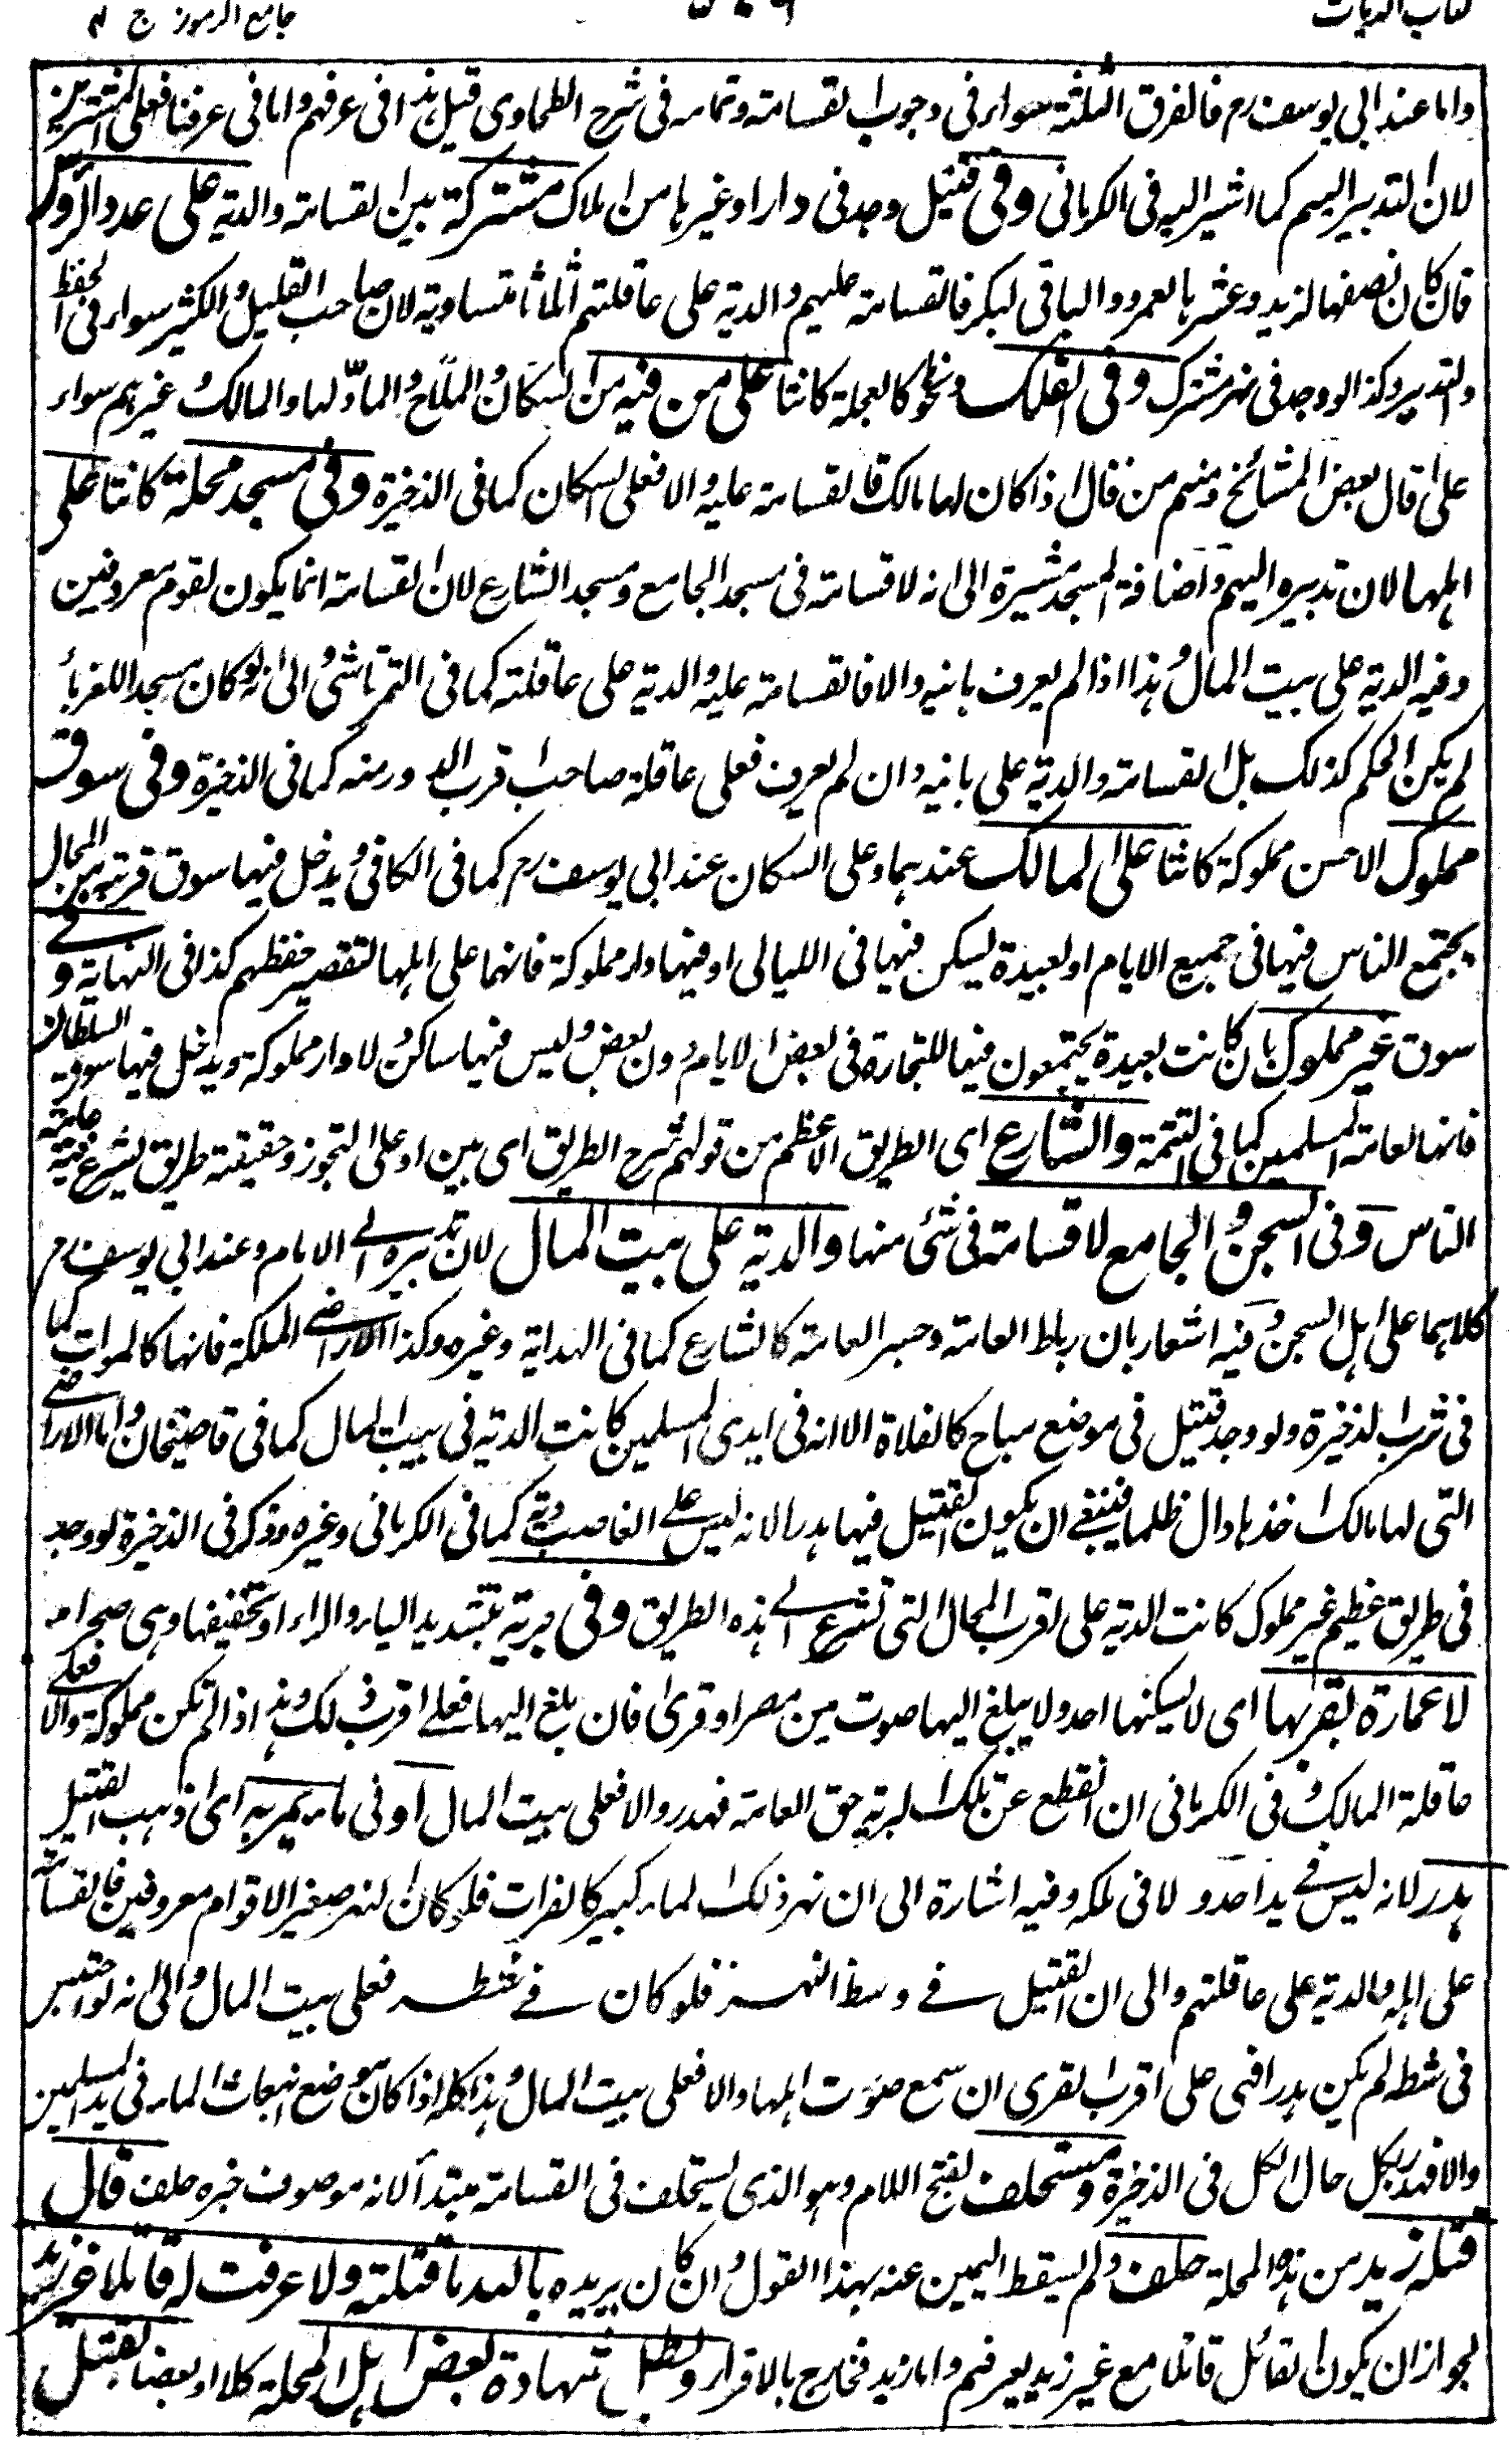 كتاب الديات
جامع الرموز ج ٢
واما عند ابى يوسف رم فالفرق الثلثة سواء فى وجوب القسامة وتمامه فى شرح الطحاوى قيل هذا فى عرفهم واما فى عرفنا فعلى المشترين
لان التدبير اليهم كما اشير اليه فى الكرمانى وفى قتيل وجد فى دار او غيرها من املاك مشتركة بين القسامة والدية على عدد الرؤس
فان كان نصفها لزيد وعشرها لعمرو والباقى لبكر فالقسامة عليهم والدية على عاقلتهم اثلاثا متساوية لان صاحب القليل والكثير سواء فى الحفظ
والتدبير وكذا لو وجد فى نهر مشترك وفى الفلك ونحوه كالعجلة كانتا على من فيه من السكان والملاح والمادّ لها والمالك وغيرهم سواء
على قال بعض المشائخ ومنهم من قال اذا كان لها مالك فالقسامة عليه والا فعلى السكان كما فى الذخيرة وفى مسجد محلة كانتا على
اهلها لان تدبيره اليهم واضافة المسجد مشيرة الى انه لا قسامة فى مسجد الجامع ومسجد الشارع لان القسامة انما يكون لقوم معروفين
وفيه الدية على بيت المال وهذا اذا لم يعرف بانيه والا فالقسامة عليه والدية على عاقلته كما فى التمرتاشى والى انه لو كان مسجدا للغرباء
لم يكن الحكم كذلك بل القسامة والدية على بانيه وان لم يعرف فعلى عاقلة صاحب اقرب الدور منه كما فى الذخيرة وفى سوق
مملوك الاحسن مملوكة كانتا على المالك عندهما وعلى السكان عند ابى يوسف رم كما فى الكافى ويدخل فيها سوق قريته من المحال
يجتمع الناس فيها فى جميع الايام او بعيدة يسكن فيها فى الليالى او فيها دار مملوكة فانهما على اهلها لتقصير حفظهم كذا فى النهاية وفى
سوق غير مملوك بان كانت بعيدة يجتمعون فيها للتجارة فى بعض الايام دون بعض وليس فيها ساكن ولا دار مملوكة ويدخل فيها سوق السلطان
فانها لعامة المسلمين كما فى التتمة والشارع اى الطريق الاعظم من قولهم شرع الطريق اى بين او على التجوز وحقيقته طريق يشرع فيه عامة
الناس وفى السجن والجامع لا قسامة فى شئ منها والدية على بيت المال لان تدبيره الى الامام وعند ابى يوسف رم
كلاهما على اهل السجن وفيه اشعار بان رباط العامة وجسر العامة كالشارع كما فى الهداية وغيره وكذا الاراضى المملكة فانها كالموات كما
فى شرب الذخيرة ولو وجد قتيل فى موضع مباح كالفلاة الا انه فى ايدى المسلمين كانت الدية فى بيت المال كما فى قاضيخان واما الاراضى
التى لها مالك اخذها وال ظلما فينبغى ان يكون القتيل فيها هدرا لانه ليس على الغاصب دية كما فى الكرمانى وغيره وذكر فى الذخيرة لو وجد
فى طريق عظيم غير مملوك كانت الدية على اقرب المحال التى تشرع الى هذه الطريق وفى برية بتشديد الياء والراء او تخفيفها وهى صحراء
لا عمارة بقربها اى لا يسكنها احد ولا يبلغ اليها صوت من مصر او قرى فان بلغ اليها فعلى اقرب ذلك وهذا اذا لم تكن مملوكة والا فعلى
عاقلة المالك وفى الكرمانى ان انقطع عن تلك البرية حق العامة فهدر والا فعلى بيت المال او فى ماء يمر به اى ذهب القتيل
هدر لانه ليس فى يد احد ولا فى ملكه وفيه اشارة الى ان نهر ذلك الماء كبير كالفرات فلو كان النهر صغير الاقوام معروفين فالقسامة
على اهله والدية على عاقلتهم والى ان القتيل فى وسط النهر فلو كان فى شطه فعلى بيت المال والى انه لو احتبس
فى شطه لم يكن هدرا فهى على اقرب القرى ان سمع صوت اهلها والا فعلى بيت المال وهذا كله اذا كان موضع انبعاث الماء فى يد المسلمين
والا فهدر بكل حال الكل فى الذخيرة ومستحلف بفتح اللام وهو الذى يستحلف فى القسامة مبتدأ لانه موصوف خبره حلف قال
قتله زيد من هذه المحلة حلف ولم يسقط اليمين عنه بهذا القول وان كان يريده بالله ما قتلته ولا عرفت له قاتلا غير زيد
لجواز ان يكون القائل قاتلا مع غير زيد يعرفهم واما زيد فخارج بالاقرار وبطل شهادة بعض اهل المحلة كلا او بعضا بقتل